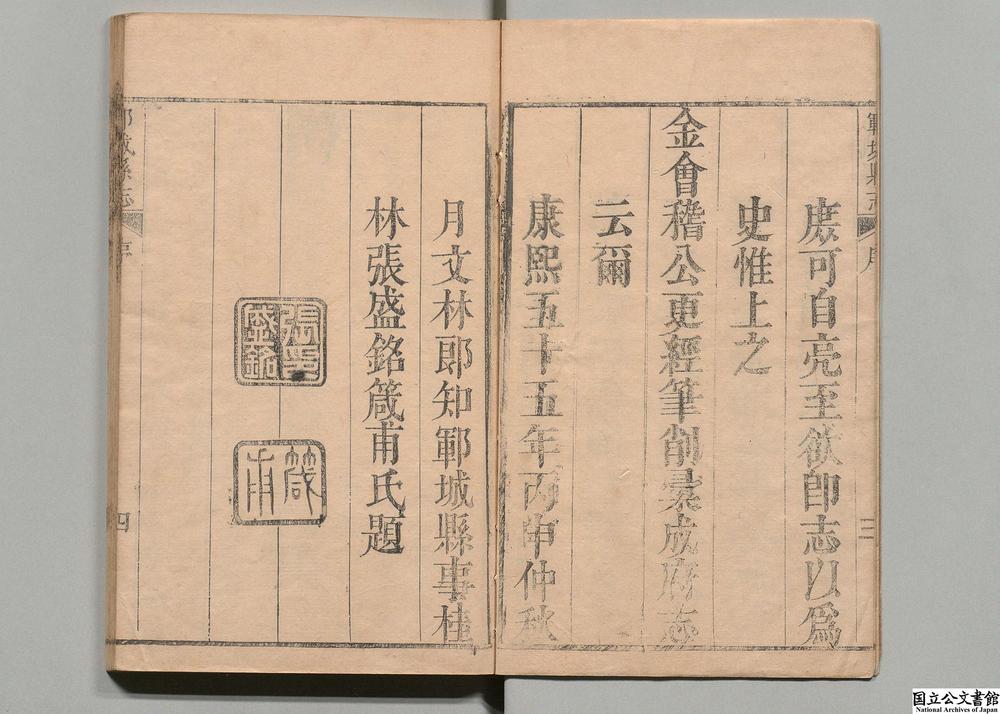 庶可自亮至欲卽志以爲
史惟上之
金會稽公更經筆削彚成府志
云爾
康熙五十五年丙申仲秋
月文林郎知鄆城縣事桂
林張盛銘箴甫氏題
張印
盛銘
箴
甫
鄆城縣志
序
三
鄆城縣志
序
四
国立公文書館
National Archives of Japan